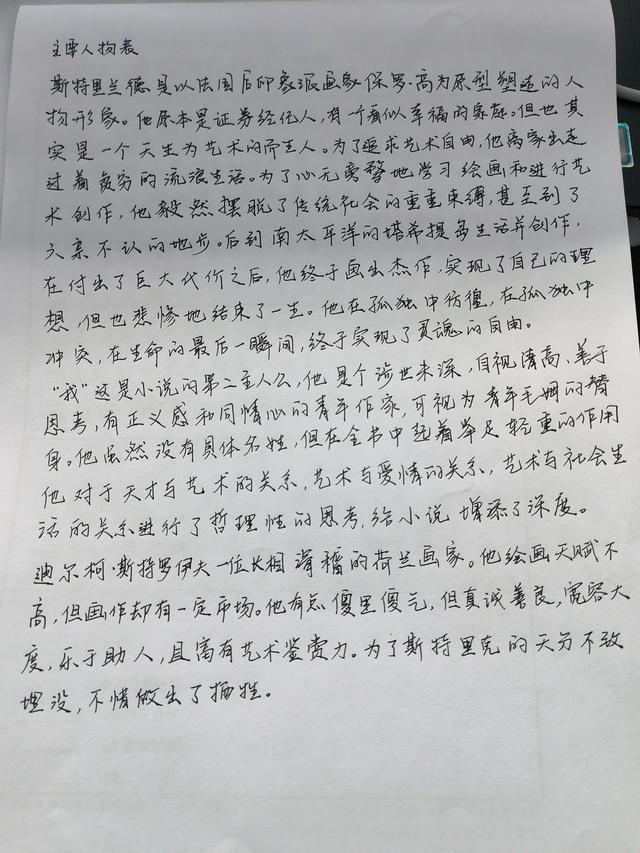 主要人物表
斯特里兰德是以法国后印象派画家保罗·高为原型塑造的人
物形象。他原本是证券经纪人,有一个看似幸福的家庭。但也其
实是一个天生为艺术的而生人。为了追求艺术自由,他离家出走
过着贫穷的流浪生活。为了心无旁骛地学习绘画和进行艺
术创作,他毅然摆脱了传统社会的重重束缚,甚至到了
六亲不认的地步。后到南太平洋的塔希提岛生活并创作,
在付出了巨大代价之后,他终于画出杰作,实现了自己的理
想,但也悲惨地结束了一生。他在孤独中彷徨,在孤独中
冲突,在生命的最后一瞬间,终于实现了灵魂的自由。
“我”这是小说的第二主人公,他是个涉世未深,自视清高、善于
思考,有正义感和同情心的青年作家,可视为青年毛姆的替
身。他虽然没有具体名姓,但在全书中起着举足轻重的作用
他对于天才与艺术的关系,艺术与爱情的关系,艺术与社会生
活的关系进行了哲理性的思考,给小说增添了深度。
迪尔柯·斯特罗伊夫一位长相滑稽的荷兰画家。他绘画天赋不
高,但画作却有一定市场。他有点傻里傻气,但真诚善良,宽容大
度,乐于助人,且富有艺术鉴赏力。为了斯特里克的天分不致
埋没,不惜做出了牺牲。